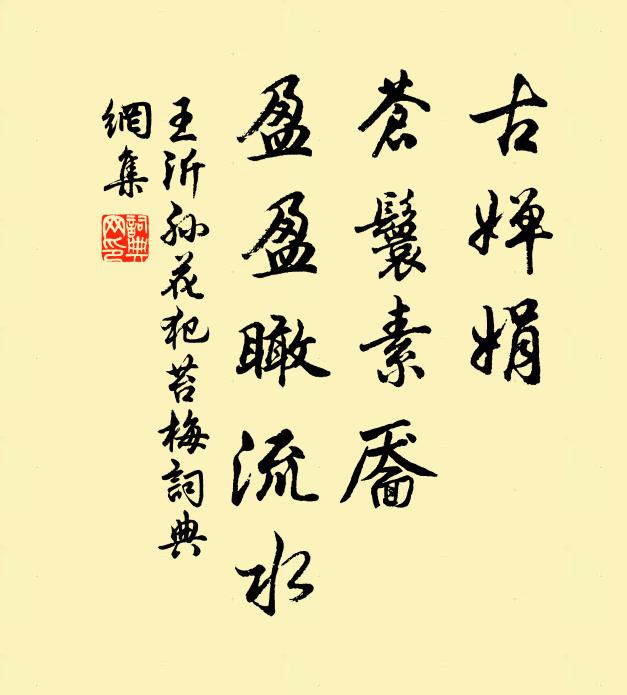 古嬋娟
蒼鬟素靨
盈盈瞰流水
王沂孫花犯苔梅詞典
網集
詞典網印